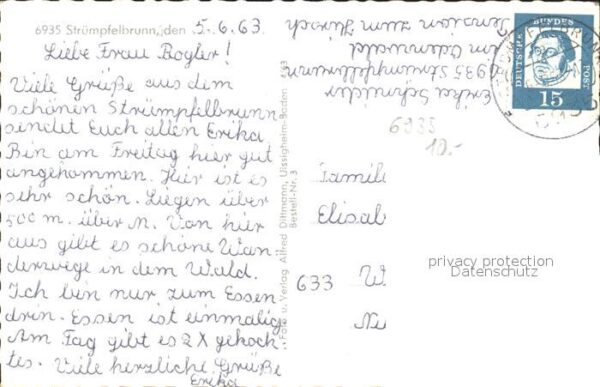 6935 Strümpfelbrunn, den 5.6.63
Liebe Frau Bogler!
Viele Grüße aus dem
schönen Strümpfelbrunn
sindet Euch allen Erika.
Bin am Freitag hier gut
angehommen. Hier ist es
sehr schön. Liegen über
500 m. über N. Von hier
aus gibt es schöne Wan
derwege in dem Wald.
Ich bin nur zum Essen
drin. Essen ist einmalig
Am Tag gibt es 2 X gekoch
tes. Viele herzliche Grüße
Erika
Foto u. Verlag Alfred Dittmann, Uissigheim-Baden
Bestell-Nr. 3
Erika Schneider
6935 Strümpfelbrunn
im Odenwald
Pension zum Hirsch
DEUTSCHE BUNDES POST
15
6935
10.-
Famili
Elisab
633 W
Ne
privacy protection
Datenschutz